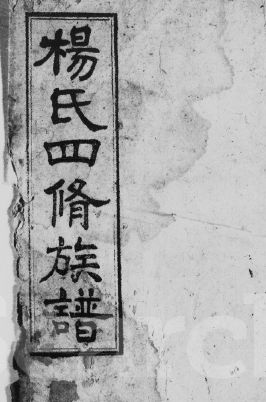 楊氏四脩族譜